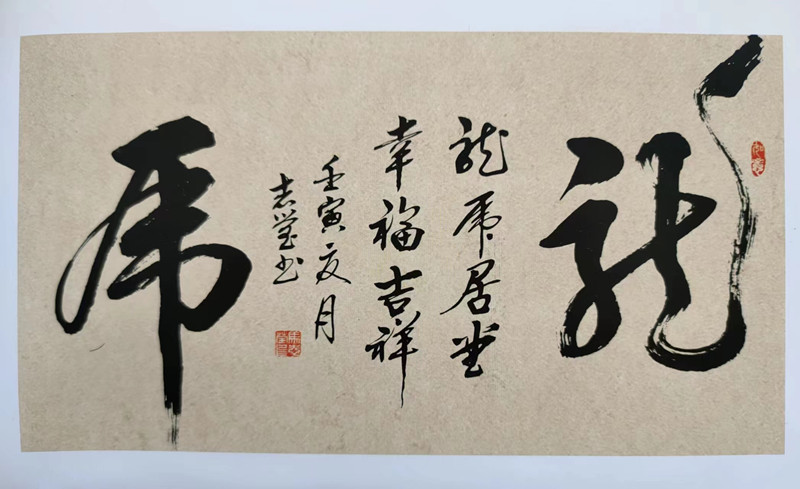 龍
如意
龍虎居堂
幸福吉祥
壬寅夏月
志莹书
虎